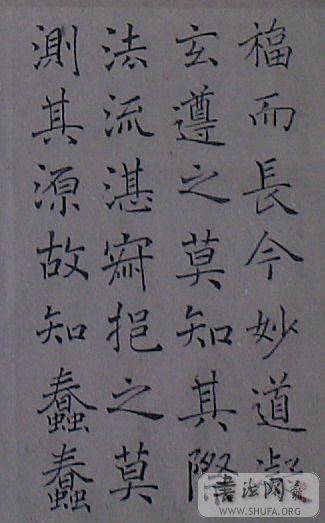 福而長今妙道凝
玄遵之莫知其際
法流湛寂挹之莫
測其源故知蠢蠢
WWW.SHUFA.ORG